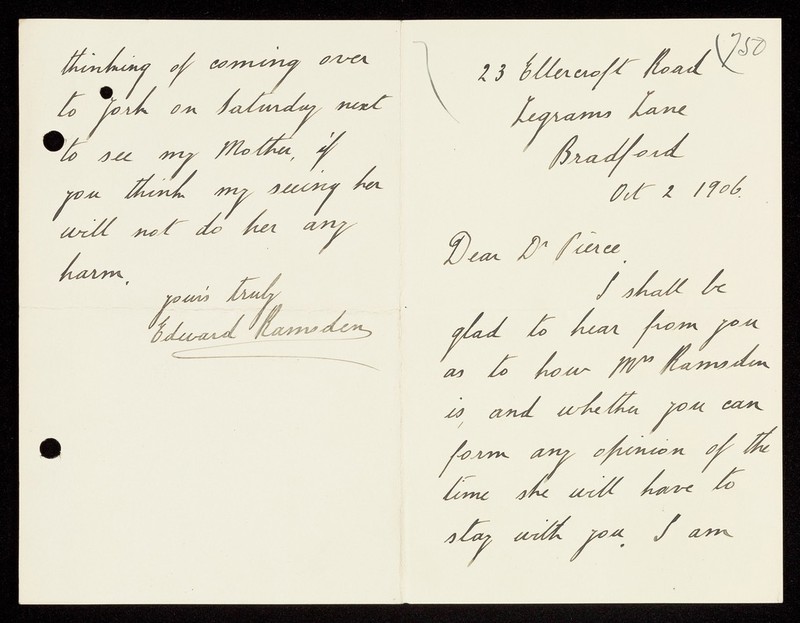 750
23 Ellercroft Road
Legrams Lane
Bradford
Oct 2 1906.
Dear Dr Pierce.
I shall be
glad to hear from you
as to how Mrs Ramsden
is, and whether you can
form any opinion of the
time she will have to
stay with you. I am
thinking of coming over
to York on Saturday next
to see my Mother, if
you think my seeing her
will not do her any
harm.
yours truly
Edward Ramsden